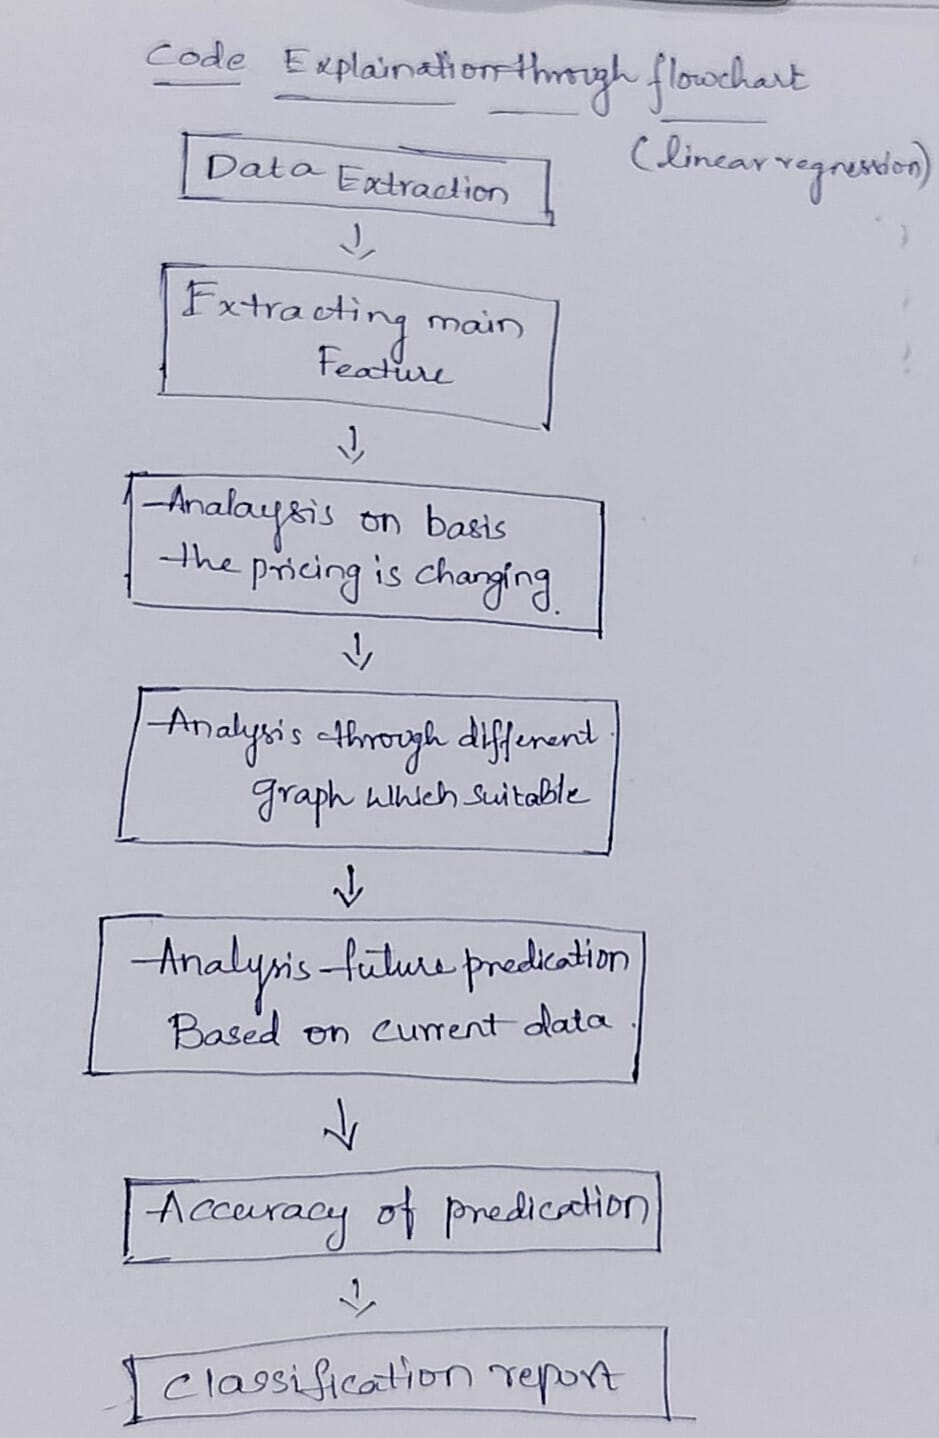 Code Explaination through flowchart
(linear regression)
Data Extraction
Extracting main
Feature
Analaysis on basis
the pricing is changing.
Analysis through different
graph which suitable
Analysis future predication
Based on current data.
Accuracy of predication
Classification report